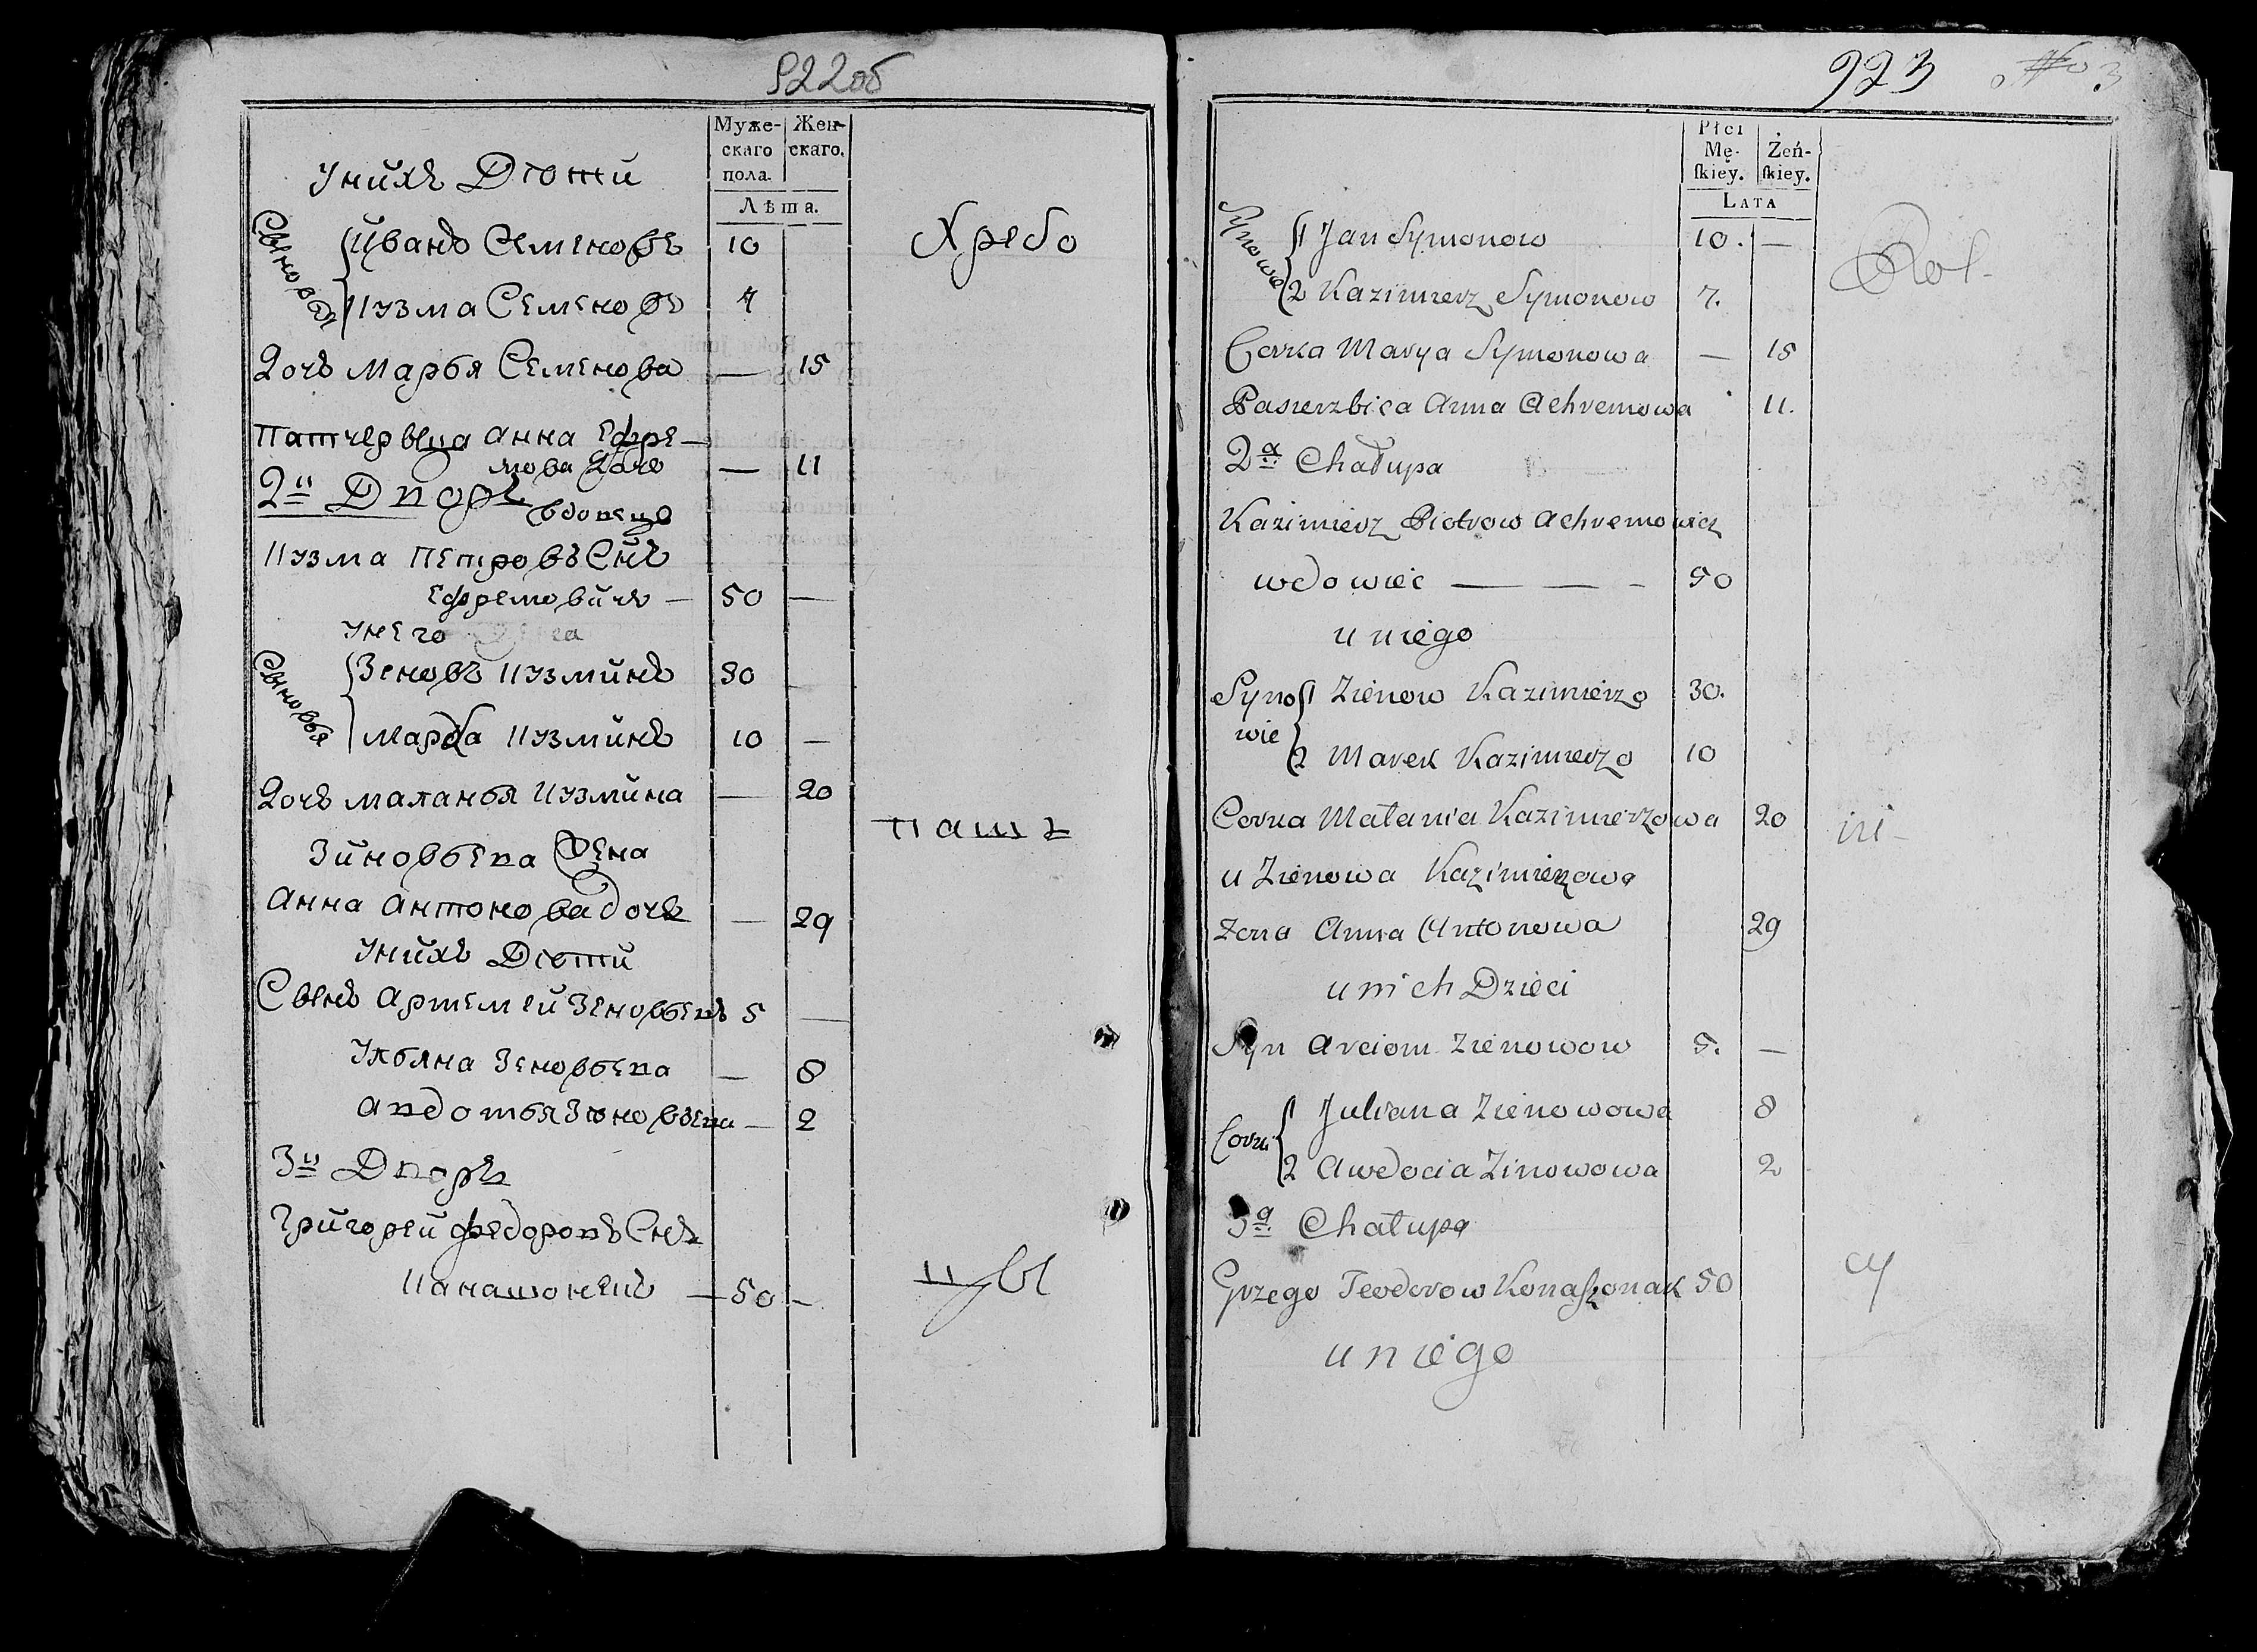 922об
Муже-
скаго
пола.
Жен-
скаго.
Лѣта.
Унихъ Дѣти
Сыновья
Иванъ Семеновъ 10
Кузма Семеновъ 7
Дочь Марья Семенова — 15
Патчервица Анна Ефре-
мова Дочь — 11
2й Дворъ
вдовецъ
Кузма Петровъ Снъ
Ефремовичъ — 50 —
Унего
Сыновья
Зеновъ Кузминъ 30
Марка Кузминъ 10 —
Дочь Маланья Кузмина — 20
Зиновьева Жена
Анна Антонова дочь — 29
Унихъ Дѣти
Сынъ Артемей Зеновьевъ 5 —
Ульяна Зеновьева — 8
Авдотья Зеновьева — 2
3й Дворъ
Григорей Федоровъ Снъ
Канашонекъ — 50 —
Хребо
паш
цы
923 No 3
Płci
Mę-
ſkiey.
Żeń-
ſkiey.
LATA
Synowie
1 Jan Symonow 10. —
2 Kazimierz Symonow 7.
Corka Marya Symonowa — 15
Pasierzbica Anna Achremowa 11.
2a Chałupa
Kazimierz Piotrow Achremowicz
wdowiec — — - 50
u niego
Syno
wie
1 Zienow Kazimierzo 30.
2 Marek Kazimierzo 10
Corka Małania Kazimierzowa 20
u Zienowa Kazimierzowa
Zona Anna Antonowa 29
u nich Dzieci
Syn Arciom Zienowow 5. —
Corki
1 Juliana Zienowowa 8
2 Awdocia Zinowowa 2
3a Chałupa
Grzego Teodorow Konaszonak 50
u niego
Rol-
ni-
cy